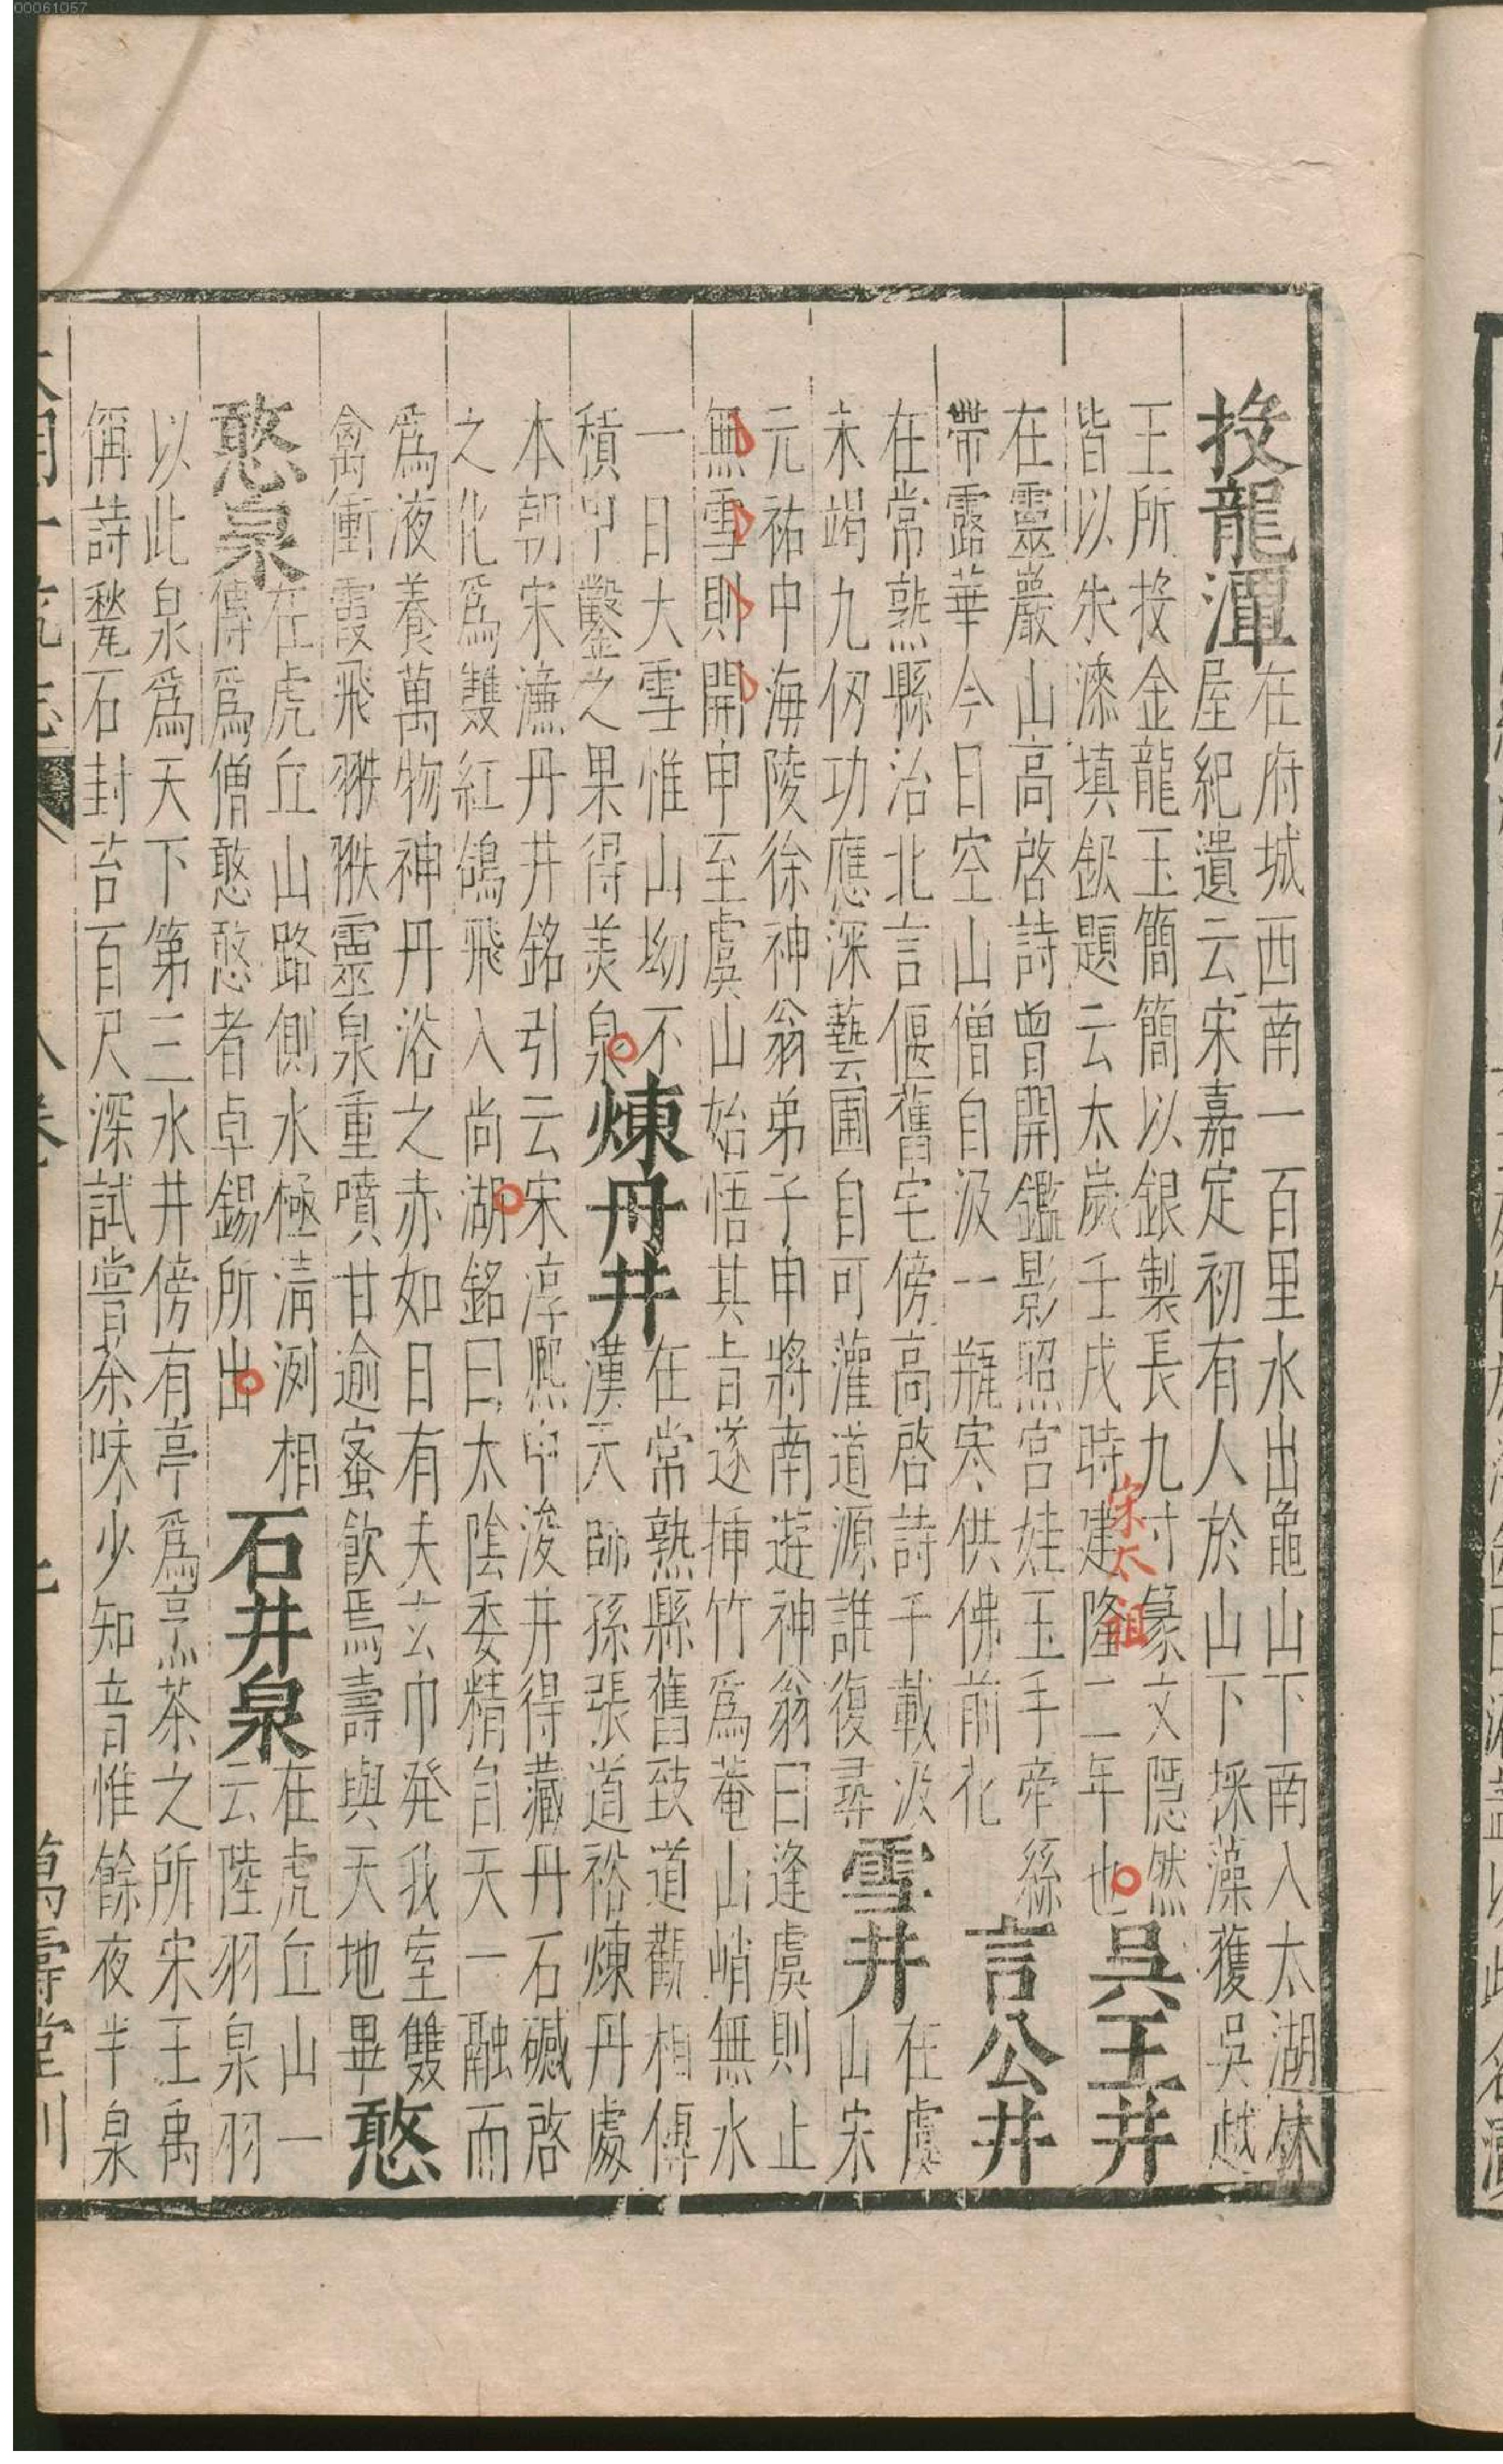 投龍潭
在府城西南一百里水出龜山下南入太湖林
屋紀遺云宋嘉定初有人於山下採藻獲吳越
王所投金龍玉簡簡以銀製長九寸篆文隠然
皆以朱漆填鈫題云太歲壬戌時建隆二年也
宋太祖
吳王井
在靈巖山高啓詩曾開鑑影照宮娃玉手牽絲
帶露華今日空山僧自汲一甁寒供佛前花
言公井
在常熟縣治北言偃舊宅傍高啓詩千載汲
未竭九仞功應深藝圃自可灌道源誰復尋
雪井
在虞
山宋
元祐中海陵徐神翁弟子申將南遊神翁曰逢虞則止
無雪則開申至虞山始悟其旨遂揷竹爲菴山峭無水
一日大雪惟山坳不
積申鑿之果得美泉
煉丹井
在常熟縣舊致道觀相傳
漢天師孫張道裕煉丹處
本朝宋濂丹井銘引云宋淳熙中浚井得藏丹石礆啓
之化爲雙紅鴿飛入尚湖銘曰太陰委精自天一融而
爲液養萬物神丹浴之赤如日有夫玄巾発我室雙
禽衝霞飛翐翐靈泉重噴甘逾蜜飲焉壽與天地畢
憨
憨泉
在虎丘山路側水極淸洌相
傳爲僧憨憨者卓錫所出
石井泉
在虎丘山一
云陸羽泉羽
以此泉爲天下第三水井傍有亭爲烹茶之所宋王禹
偁詩甃石封苔百尺深試嘗茶味少知音惟餘夜半泉
萬壽堂刊
00061057